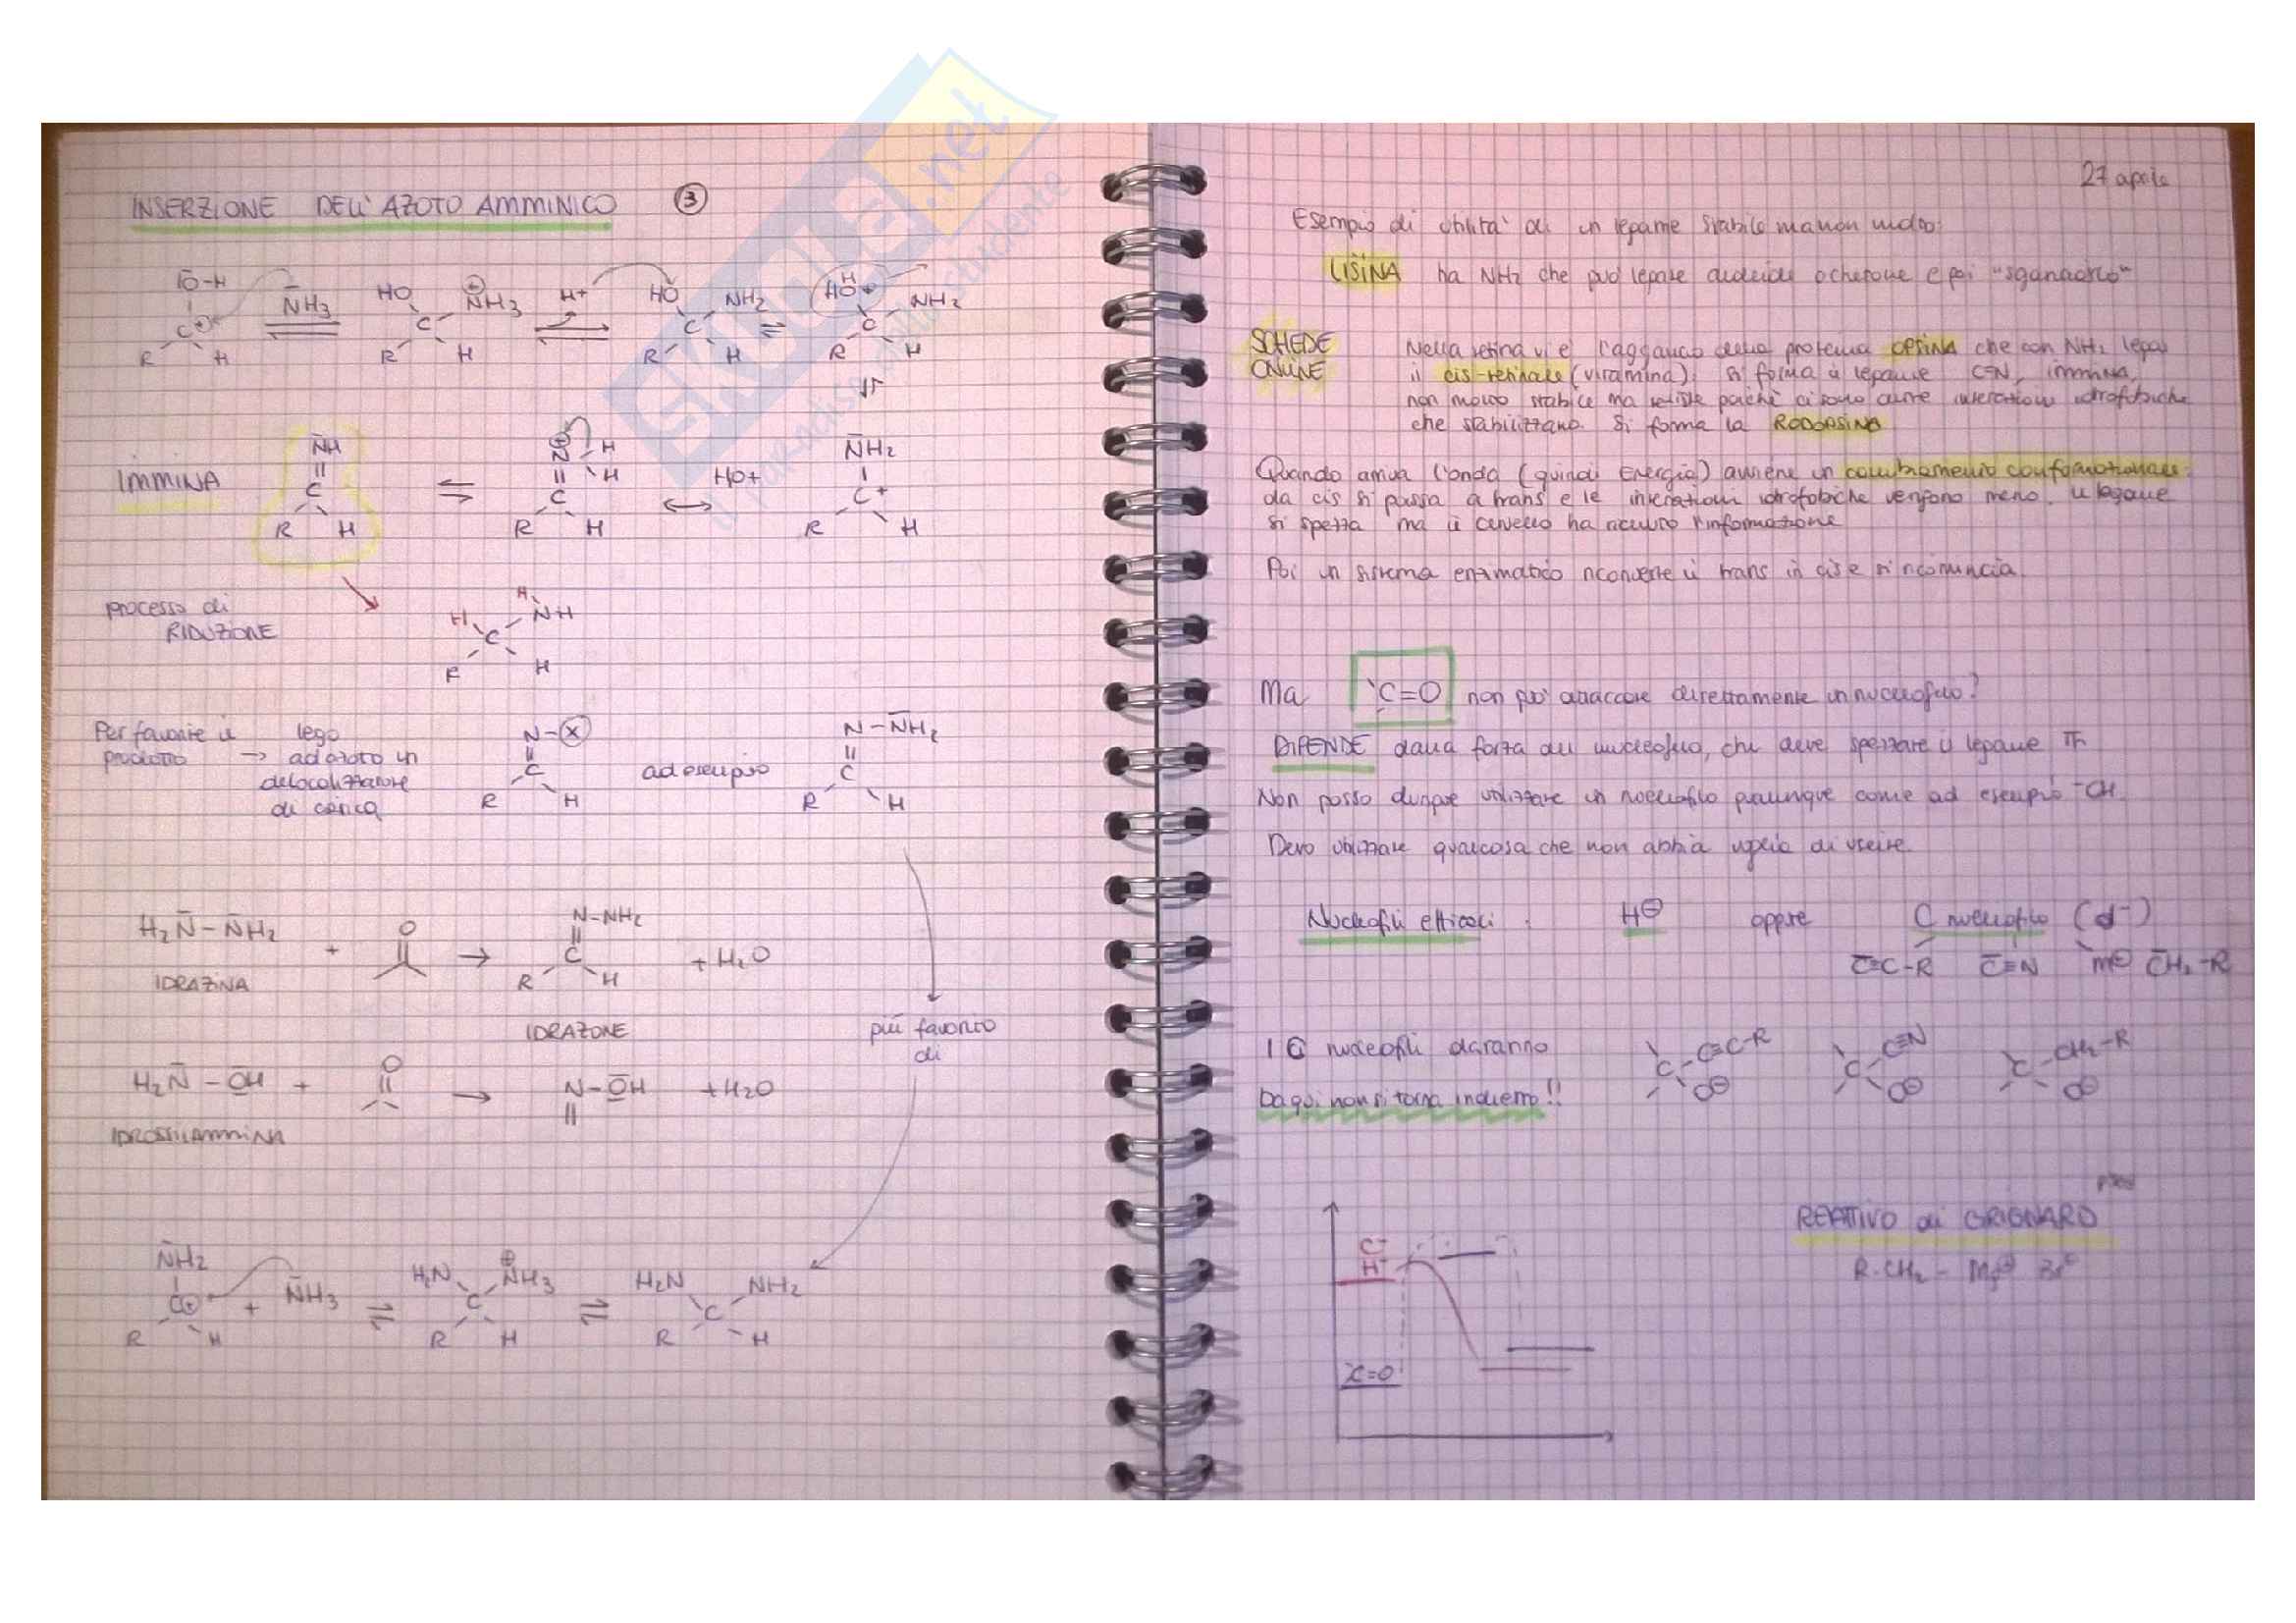 INSERZIONE DELL' AZOTO AMMINICO ③
IŌ-H
N̄H3
HO
⊕
NH3
H+
HO
NH2
H
HO
NH2
C⊕
C
C
C
R H
R H
R H
R H
IMMINA
N̄H
||
C
R H
⊕
N
H
H
||
C
R H
H2O+
N̄H2
C+
R H
processo di
RIDUZIONE
H
H
NH
C
R H
Per favorire il
prodotto →
lego
ad azoto un
delocalizzatore
di carica
N-Ⓧ
||
C
R H
ad esempio
N-N̄H2
||
C
R H
H2N̄-N̄H2 + O → N-NH2
||
C
R H
+ H2O
IDRAZINA
IDRAZONE
più favorito
di
H2N̄-OH + O → N-OH + H2O
IDROSSILAMMINA
N̄H2
C⊕ + N̄H3
R H
H2N
⊕
NH3
C
R H
H2N NH2
C
R H
27 aprile
Esempio di utilità di un legame stabile ma non molto:
LISINA ha NH2 che può legare aldeide o chetone e poi "sganciarlo"
SCHEDE
ONLINE
Nella retina vi è l'aggancio della proteina OPSINA che con NH2 lega
il cis-retinale (vitamina). Si forma il legame C=N, immina,
non molto stabile ma resiste poiché ci sono altre interazioni idrofobiche
che stabilizzano. Si forma la RODOPSINA
Quando arriva l'onda (quindi Energia) avviene un cambiamento conformazionale:
da cis si passa a trans e le interazioni idrofobiche vengono meno. Il legame
si spezza ma il cervello ha ricevuto l'informazione
Poi un sistema enzimatico riconverte il trans in cis e si ricomincia.
Ma C=O non può attaccare direttamente un nucleofilo?
DIPENDE dalla forza del nucleofilo, che deve spezzare il legame π
Non posso dunque utilizzare un nucleofilo qualunque come ad esempio -OH
Devo utilizzare qualcosa che non abbia voglia di uscire.
Nucleofili efficaci: H⊖ oppure C nucleofilo (d-)
C̄≡C-R C̄≡N C̄H2-R
I C nucleofili daranno
C≡C-R
C
O⊖
C≡N
C
O⊖
CH2-R
C
O⊖
Da qui non si torna indietro!!
C-
H-
C=O
REATTIVO di GRIGNARD
R-CH2-Mg⊕ Br⊖